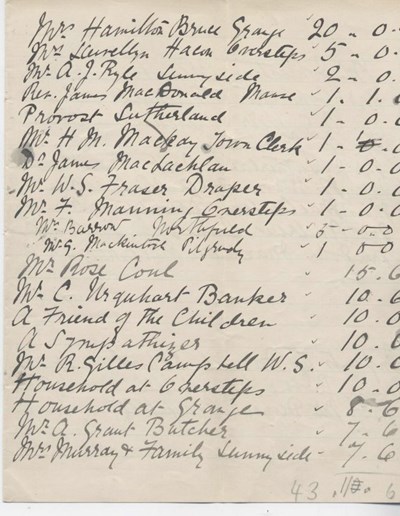 Mrs Hamilton Bruce Grange 20 - 0 -
Mrs Llewellyn Hacon Oversteps 5 - 0 -
Mr A. J. Ryle Sunnyside 2 - 0 -
Rev. James MacDonald Manse 1. 1. 0
Provost Sutherland 1 - 0. 0
Mr H. M. Mackay Town Clerk 1 - 0. 0
Dr James MacLachlan 1 - 0. 0
Mr W. S. Fraser Draper 1 - 0. 0
Mr F. Manning Oversteps 1 - 0. 0
Mr Barrow Northfield 5 - 0. 0
Mr G. Mackintosh Pilgrudy 1 0 0
Mr Rose Coul 15. 6
Mr C. Urquhart Banker 10. 6
A Friend of the Children 10. 0
A Sympathizer 10. 0
Mr R. Gilles Campbell W. S. 10. 0
Household at Oversteps 10 - 0
Household at Grange 8. 6
Mr A. Grant Butcher 7. 6
Mrs Murray & Family Sunnyside 7. 6
43 . 11 . 6